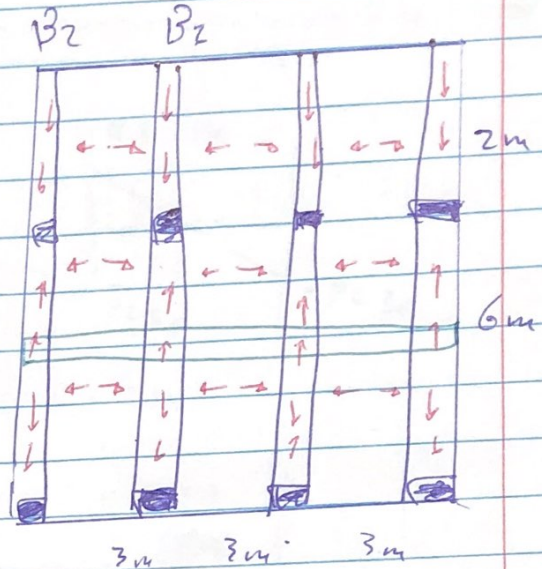 B2 B2
2m
6m
3m 3m 3m